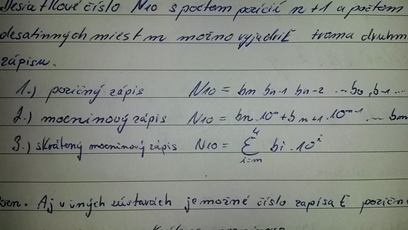 Desiatkové číslo N10 s počtom pozícií n+1 a počtom
desatinných miest m možno vyjadriť troma druhmi
zápisu.
1.) pozičný zápis N10 = bn bn-1 bn-2 ... b0, b-1 ...
2.) mocninový zápis N10 = bn.10ⁿ + bn+1.10ⁿ⁻¹ ... bm
3.) skrátený mocninový zápis N10 = Σ bi.10ⁱ
i=m
Pozn. Aj v iných sústavách je možné číslo zapísať pozičn